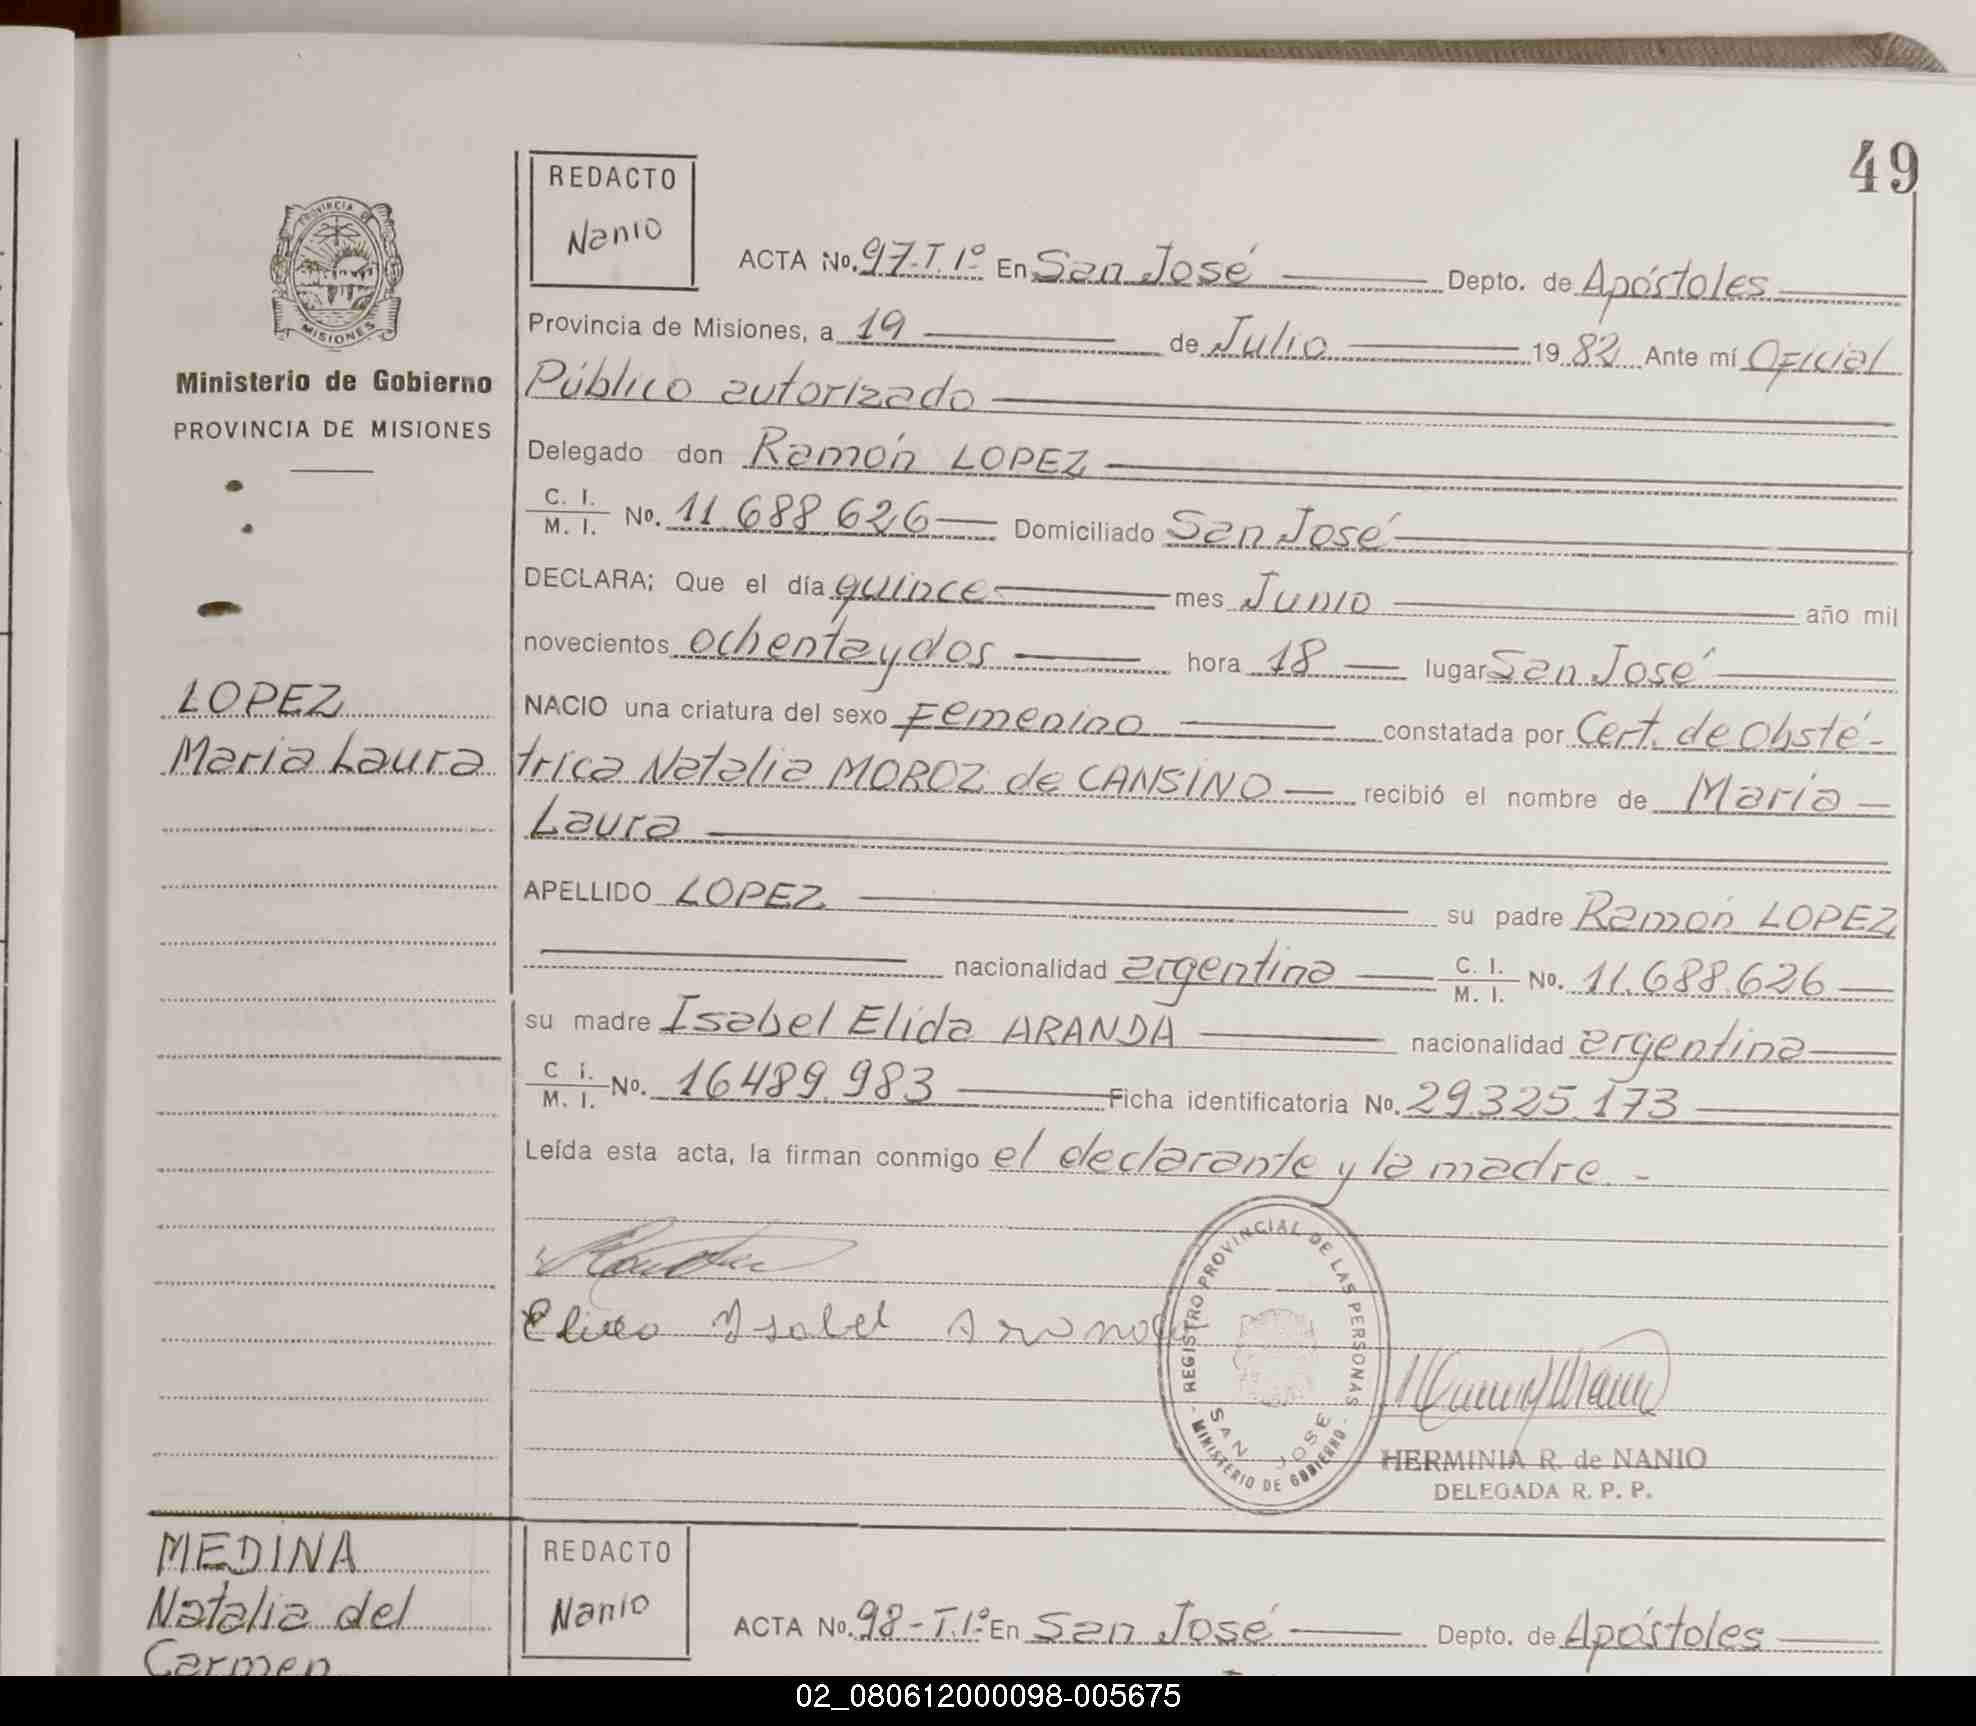 49
REDACTO
Nanio
PROVINCIA DE
MISIONES
Ministerio de Gobierno
PROVINCIA DE MISIONES
ACTA No. 97-T.1º En San José Depto. de Apóstoles
Provincia de Misiones, a 19 de Julio 19 82 Ante mí Oficial
Público autorizado
Delegado don Ramón LOPEZ
C. I. / M. I. No. 11.688.626 Domiciliado San José
DECLARA; Que el día quince mes Junio año mil
novecientos ochenta y dos hora 18 lugar San José
LOPEZ
Maria Laura
NACIO una criatura del sexo Femenino constatada por Cert. de Obsté-
trica Natalia MOROZ de CANSINO recibió el nombre de María
Laura
APELLIDO LOPEZ su padre Ramón LOPEZ
nacionalidad argentina C. I. / M. I. No. 11.688.626
su madre Isabel Elida ARANDA nacionalidad argentina
C I. / M. I. No. 16489.983 Ficha identificatoria No. 29.325.173
Leída esta acta, la firman conmigo el declarante y la madre.-
Isabel
REGISTRO PROVINCIAL DE LAS PERSONAS
SAN JOSE
MINISTERIO DE GOBIERNO
HERMINIA R. de NANIO
DELEGADA R. P. P.
MEDINA
Natalia del
Carmen
REDACTO
Nanio
ACTA No. 98-T.1º En San José Depto. de Apóstoles
02_080612000098-005675